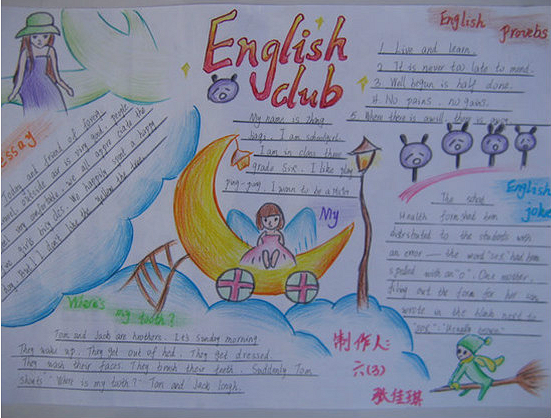 English
club
English Proverbs
1. Live and learn.
2. It is never too late to mend.
3. Well begun is half done.
4. No pains, no gains.
5. When there is a will, there is
My name is Zhang
I am schoolgirl.
I am in class three
grade six. I like play
ping-pong. I want to be a
My
Essay
Today and friends of forest
outside air is very good, people
very comfortable, we all appreciate the
We happily spent a happy
day. But I don't like the
English
joke
The school
Health form had been
distributed to the students with
an error — the word "sex" had been
spelled with an "o". One mother,
filling out the form for her son
wrote in the blank next to
Where's
my tooth?
Tom and Jack are brothers. It's sunday morning
They wake up. They get out of bed. They get dressed.
They wash their faces. They brush their teeth. Suddenly Tom
shouts "Where is my tooth?" Tom and Jack laugh.
制作人:
六(3)
张佳琪